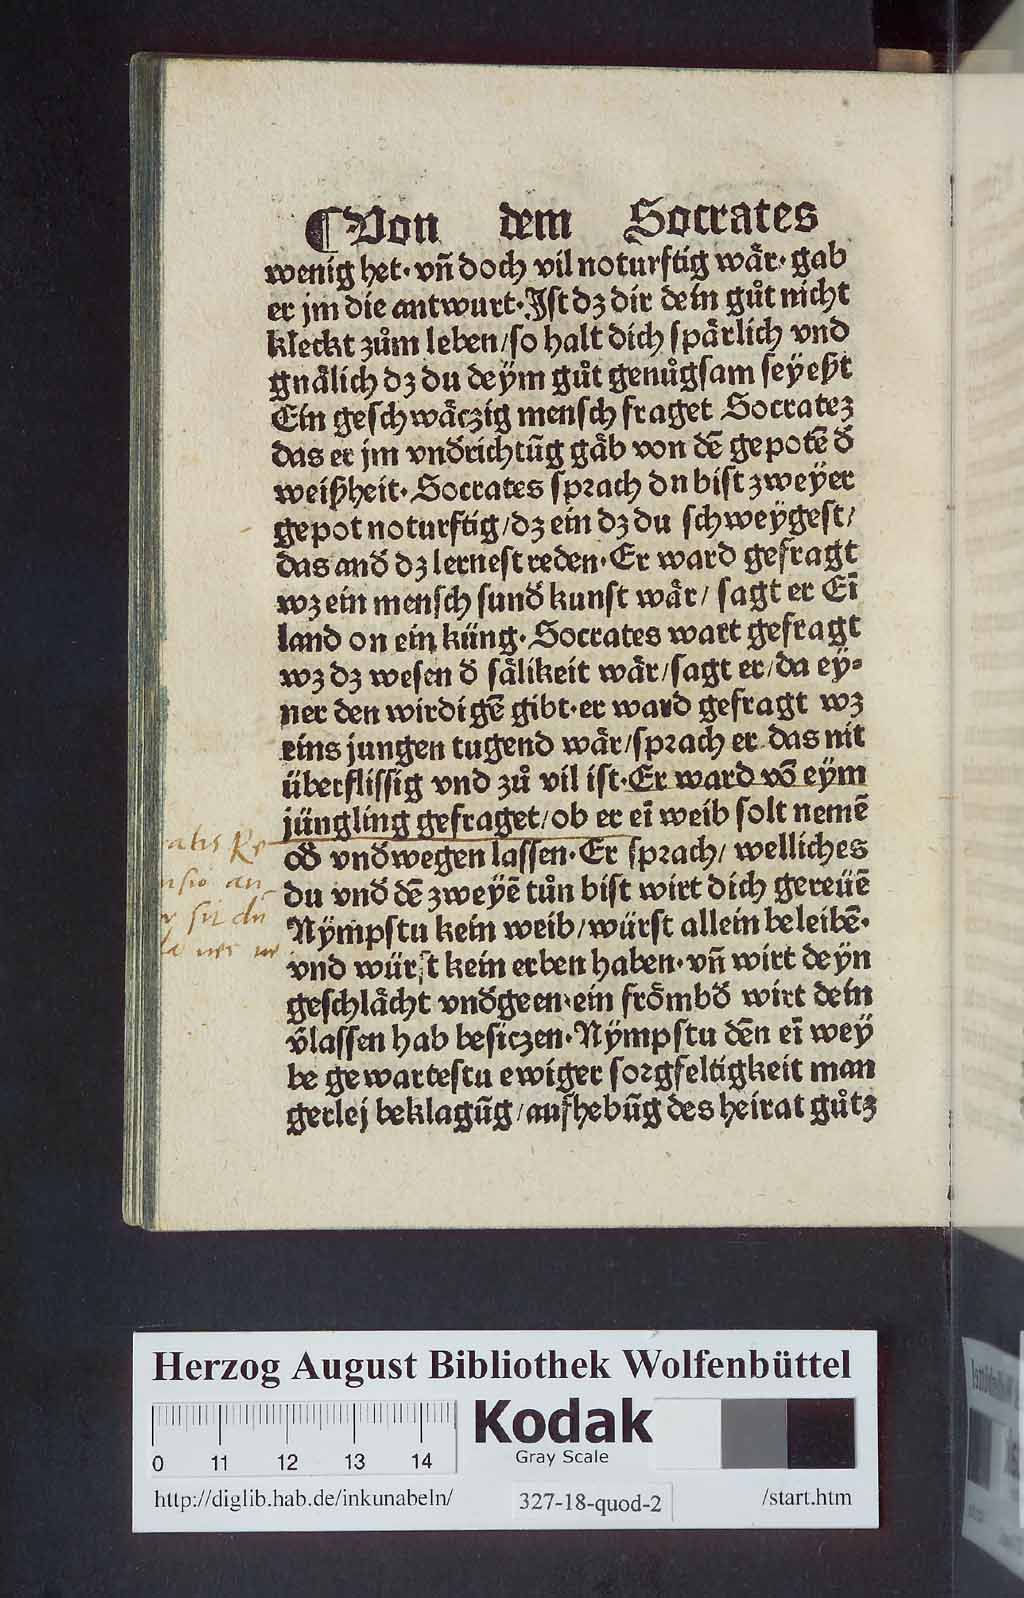 ¶Von dem Socrates
wenig het· vñ doch vil noturftig wår· gab
er jm die antwurt· Jst dz dir dein gůt nicht
kleckt zům leben/ so halt dich spårlich vnd
gnålich dz du deÿm gůt genůgsam seÿeßt
Ein geschwåczig mensch fraget Socratez
das er jm vnđrichtũg gåb von dẽ gepotẽ đ
weißheit· Socrates sprach dn bist zweÿer
gepot noturftig/ dz ein dz du schweÿgest/
das anđ dz lernest reden· Er ward gefragt
wz ein mensch sunđ kunst wår/ sagt er Eĩ
land on ein küng· Socrates wart gefragt
wz dz wesen đ sålikeit wår/ sagt er/ da eÿ⸗
ner den wirdigẽ gibt· er ward gefragt wz
eins jungen tugend wår/ sprach er das nit
überflissig vnd zů vil ist· Er ward võ eÿm
jüngling gefraget/ ob er eĩ weib solt nemẽ
ođ vnđwegen lassen· Er sprach/ welliches
du vnđ dẽ zweÿẽ tůn bist wirt dich gereüẽ
Nÿmpstu kein weib/ würst allein beleibẽ·
vnd würst kein erben haben· vñ wirt deÿn
geschlåcht vnđgeen· ein frömbđ wirt dein
v̄lassen hab besiczen· Nÿmpstu dẽn eĩ weÿ
be gewartestu ewiger sorgfeltigkeit man
gerlej beklagũg/ aufhebũg des heirat gůtz
atis Re
nsio an
sit du
Herzog August Bibliothek Wolfenbüttel
0 11 12 13 14
Kodak
Gray Scale
http://diglib.hab.de/inkunabeln/ 327-18-quod-2 /start.htm